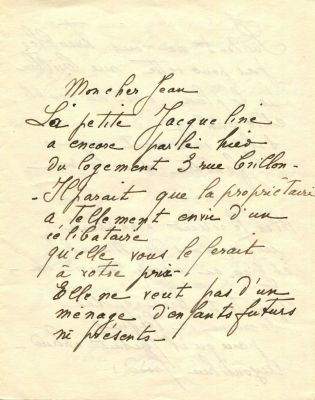 Mon cher Jean
La petite Jacqueline
a encore parlé hier
du logement 3 rue Crillon -
- Il parait que la propriétaire
a tellement envie d'un
célibataire
qu'elle vous le ferait
à votre prix -
Elle ne veut pas d'un
ménage d'enfants futurs
ni présents -